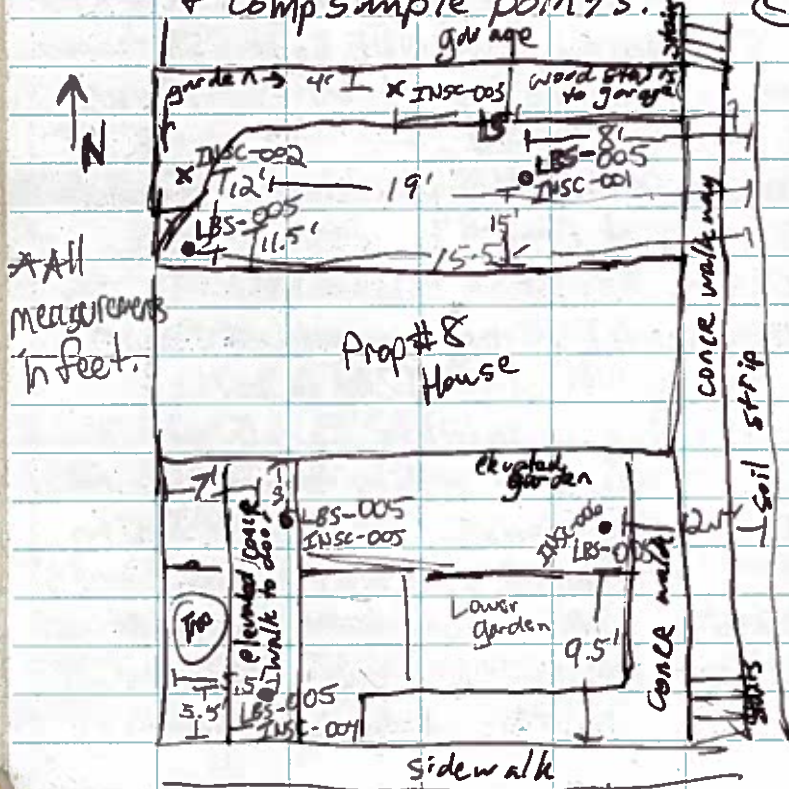 + comp sample points.
garage
stairs
garden → 4'
x INSC-003
wood stairs
to garage
N
15
8'
x INSC-002
LBS-005
INSC-001
12'
19'
LBS-005
11.5'
15'
15.5'
*All
measurements
in feet.
Prop#8
House
concr walkway
soil strip
7'
3'
elevated
garden
LBS-005
INSC-005
INSC-006
LBS-005
elevated concr
walk to door
Tree
Lower
garden
9.5'
concr walk
5.5'
LBS-005
INSC-004
stairs
sidewalk